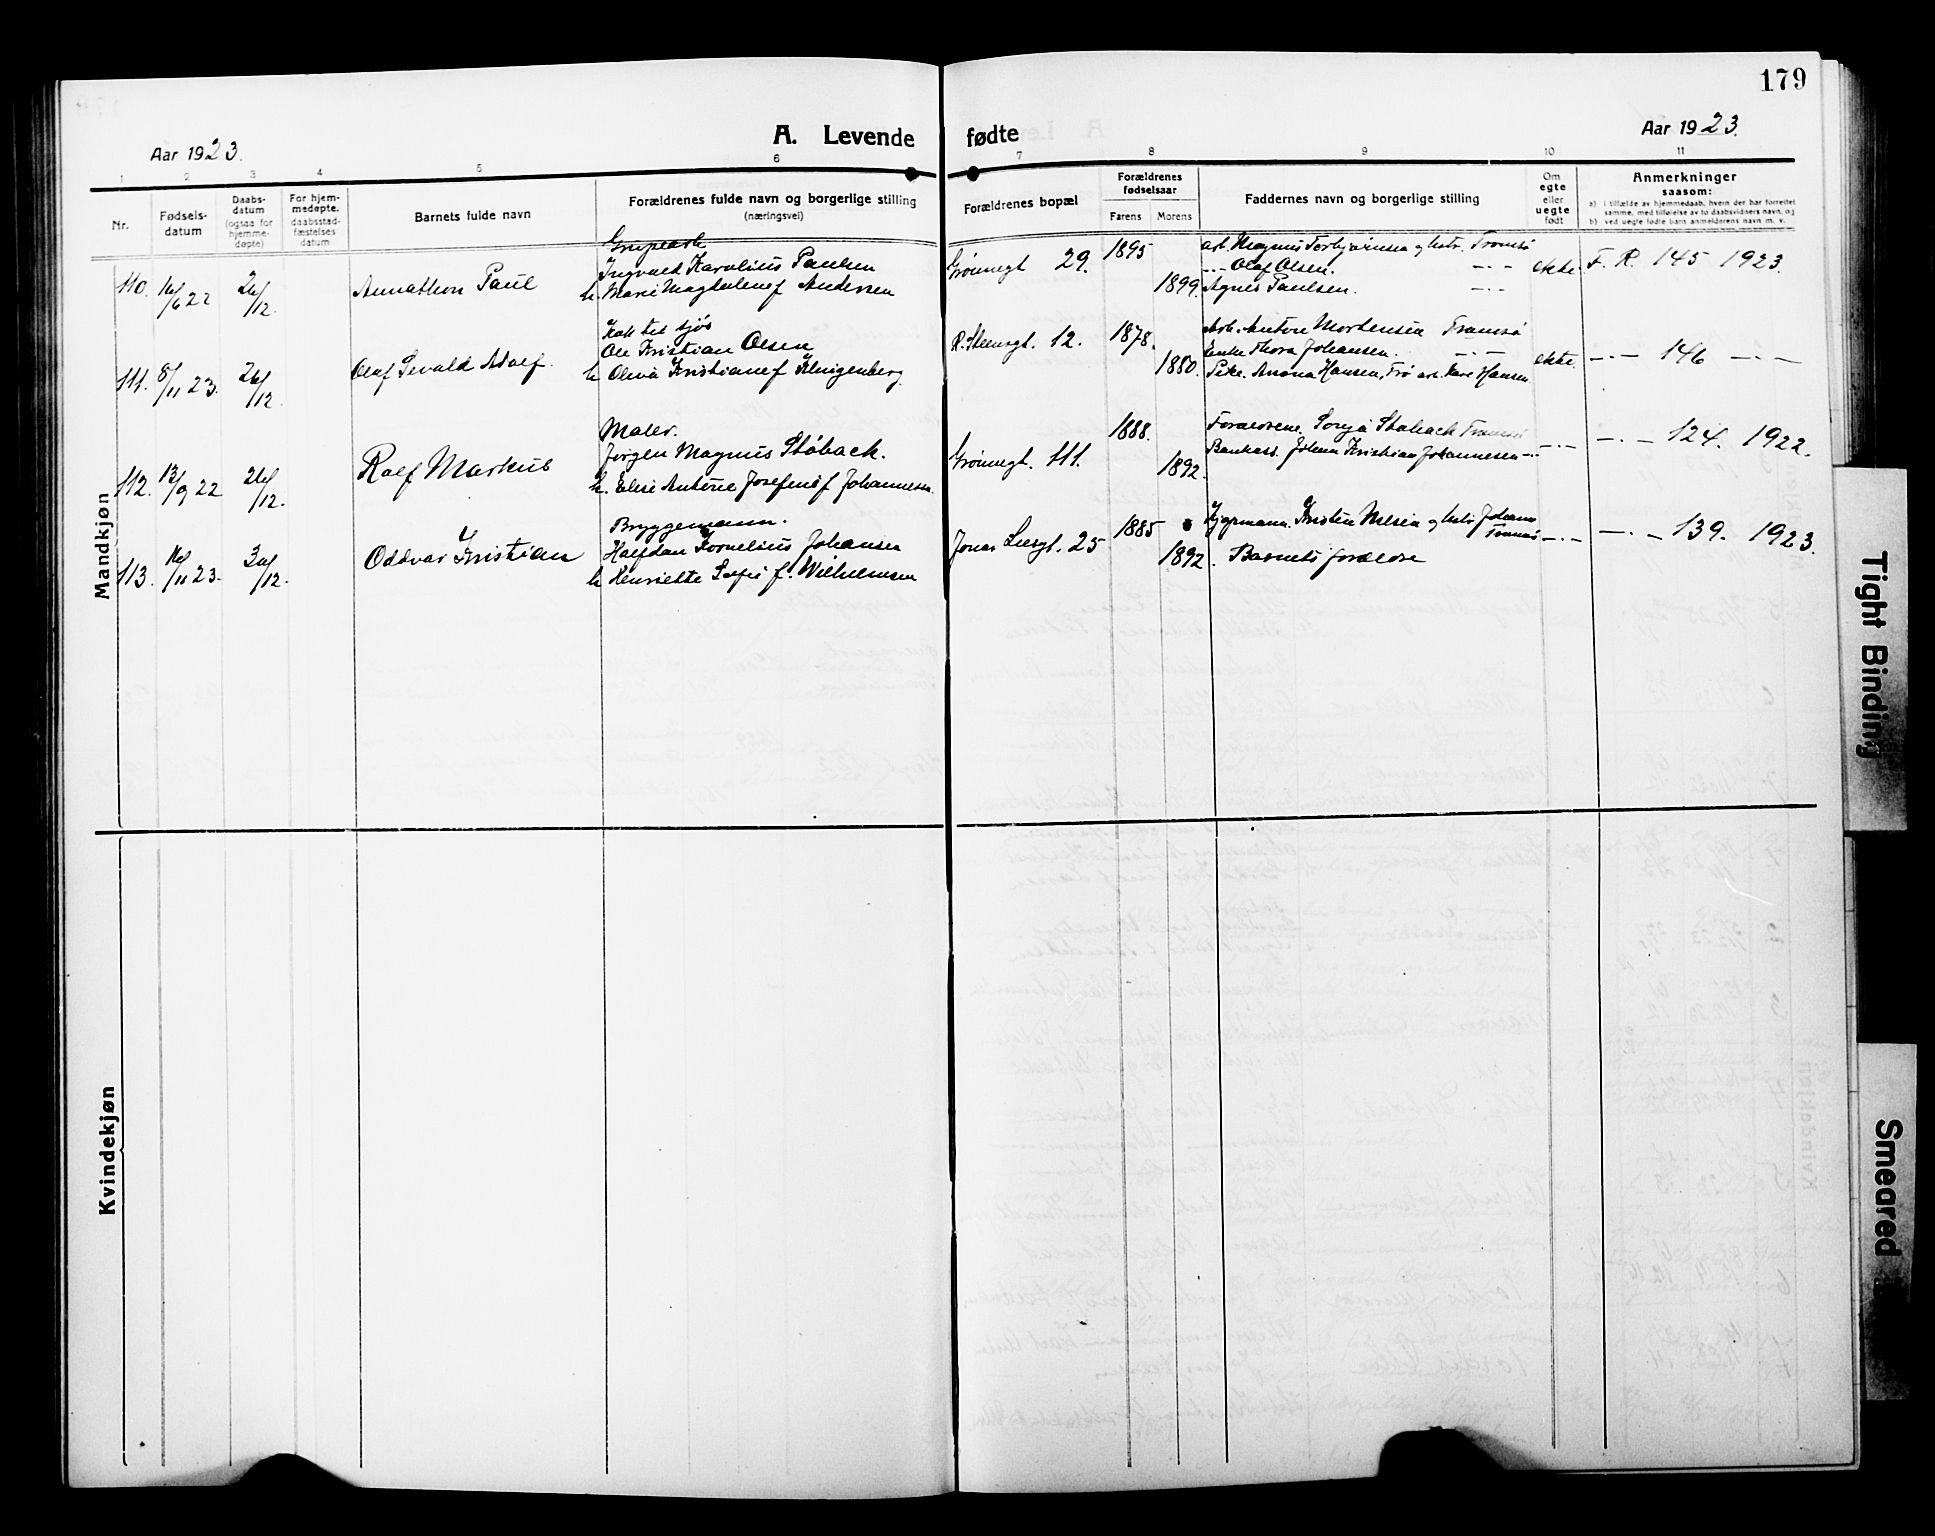 179
Aar 1923.
A. Levende fødte
Aar 1923.
1 2 3 4 5 6 7 8 9 10 11
Nr.
Fødsels-
datum
Daabs-
datum
(ogsaa for
hjemme-
døpte)
For hjem-
medøpte.
daabsstad-
fæstelses
datum
Barnets fulde navn
Forældrenes fulde navn og borgerlige stilling
(næringsvei)
Forældrenes bopæl
Forældrenes
fødselsaar
Farens Morens
Faddernes navn og borgerlige stilling
Om
egte
eller
uegte
født
Anmerkninger
saasom:
a) i tilfælde av hjemmedaab, hvem der har forrettet
samme, med tilføielse av to daabsvidners navn, og
b) ved uegte fødte barn anmelderens navn m. v.
Mandkjøn
110. 16/6 22 26/12. Paul
Ingvald Karolius Paulsen
h. Marie Magdalene f Andersen
Grønnegt 29. 1895 1899.
arb. Magnus Torbjørnsen og hstr. Tromsø
-"- Olaf Olsen. -"-
Agnes Paulsen. -"-
ekte. F. R. 145 1923.
111. 8/11 23. 26/12. Olaf Sevald Adolf.
Ole Kristian Olsen
h. Oleva Kristiane f Klingenberg.
R. Steensgt. 12. 1878. 1880.
Arb. Anton Mortensen Tromsø
Enke Thora Johansen. -"-
Pike. Anna Hansen, Frø arb. Kare Hansen
ekte. -"- 146 -"-
112. 13/9 22 26/12. Rolf Markus
Maler.
Jørgen Magnus Støback.
h. Elise Antonie Josefine f Johannesen.
Grønnegt. 111. 1888. 1892.
Forældrene. Sonja Støback Tromsø
Bankass. Johan Kristian Johannesen -"-
-"- -"- 124. 1922.
113. 16/11 23. 26/12. Oddvar Kristian
Bryggemann.
Halfdan Kornelius Johansen
h Henriette Sofie f. Wilhelmsen
Jonas Liesgt. 25 1885 1892.
Kjørmann. Kristen Nilsen og hstr. Johanna
Tromsø
Barnets forældre
-"- -"- 139. 1923.
Kvindekjøn
Tight Binding
Smeared